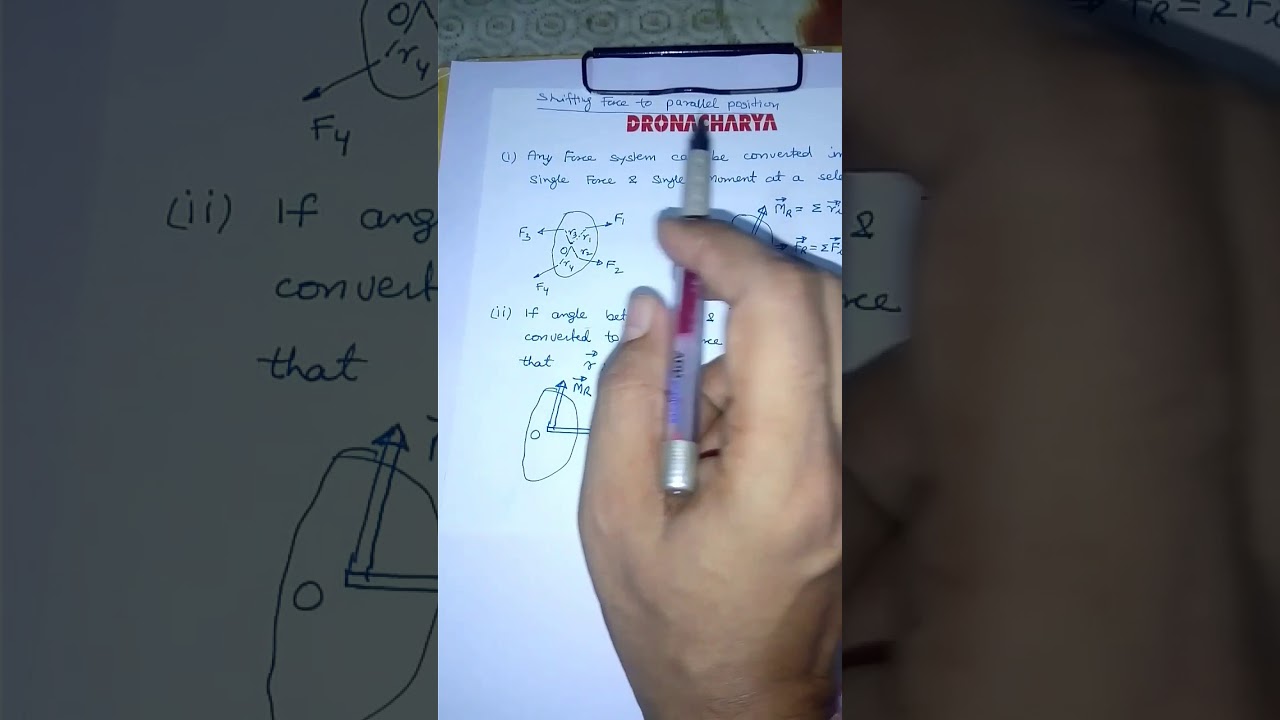 Shifting Force to parallel position
DRONACHARYA
(i) Any Force system can be converted in
Single Force & Single moment at a sele
F3
F1
r3 r1
O r2
r4
F2
F4
M⃗R = Σ r⃗
F⃗R = Σ F⃗i
(ii) If angle bet &
converted to
that r⃗
M⃗R
O
O
r4
F4
(ii) If ang
convert
that
O
FR = ΣFi
&